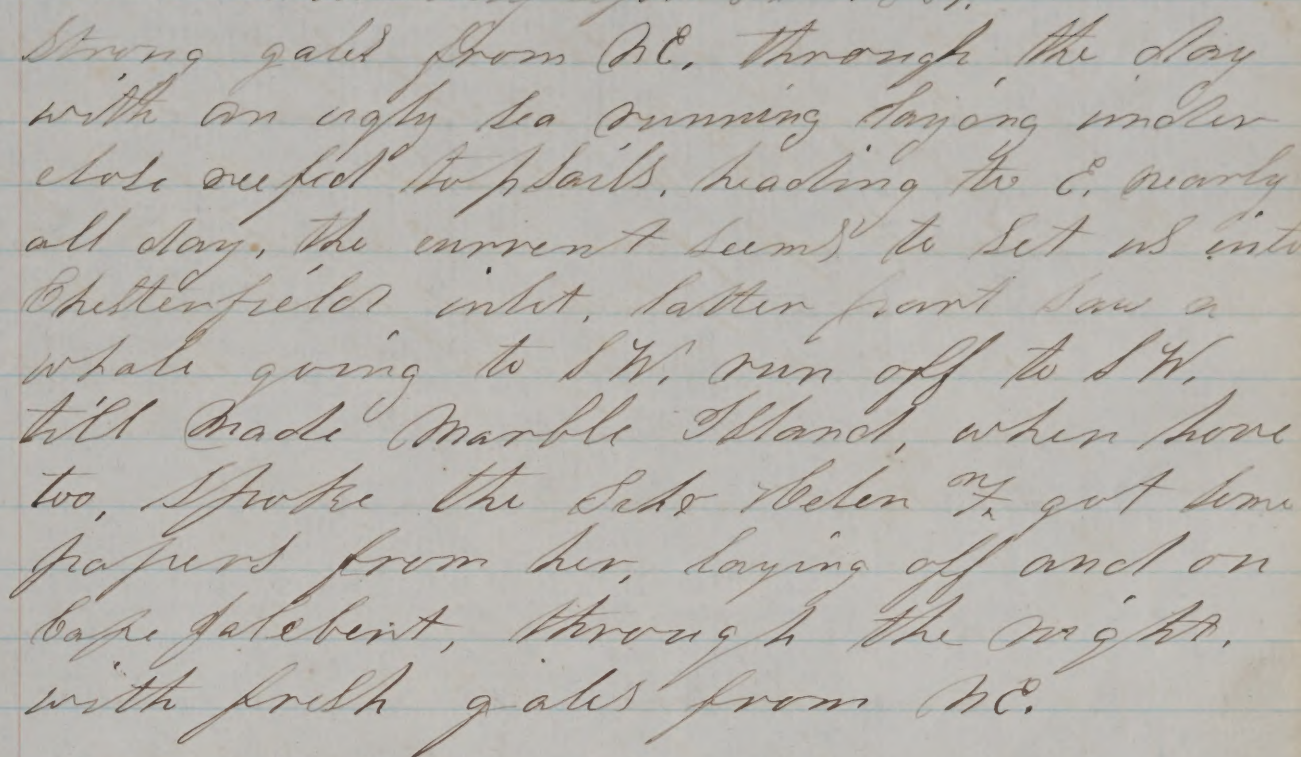 Strong gales from NE. through the day
with an ugly sea running laying under
close reefed topsails. heading to E. nearly
all day, the current seems to set us into
Chesterfield inlet. latter part saw a
whale going to SW. run off to SW.
till made Marble Island, when hove
too, Spoke the Schr Helen F. got some
papers from her, laying off and on
Cape Jalebert, through the night.
with fresh gales from NE.